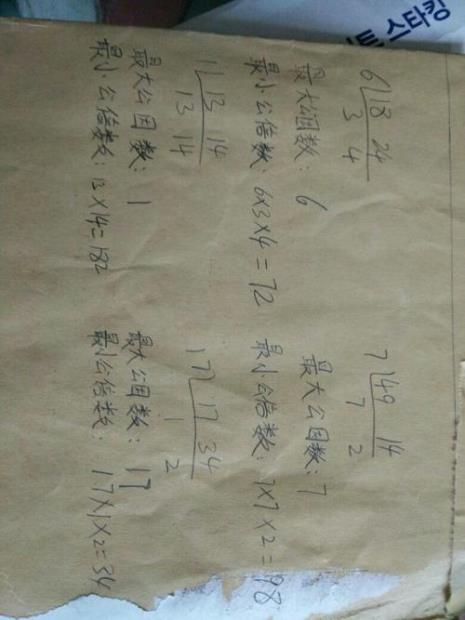 스타킹
6 18 24
3 4
最大公因数: 6
最小公倍数: 6×3×4=72
7 49 14
7 2
最大公因数: 7
最小公倍数: 7×7×2=98
1 13 14
13 14
最大公因数: 1
最小公倍数: 13×14=182
17 17 34
1 2
最大公因数: 17
最小公倍数: 17×1×2=34